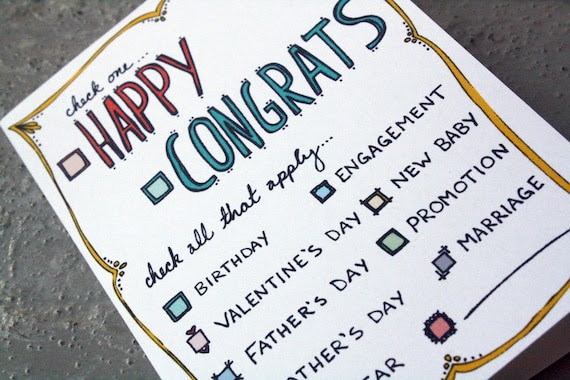 check one...
HAPPY
CONGRATS
check all that apply...
BIRTHDAY
VALENTINE'S DAY
FATHER'S DAY
OTHER'S DAY
EAR
ENGAGEMENT
NEW BABY
PROMOTION
MARRIAGE